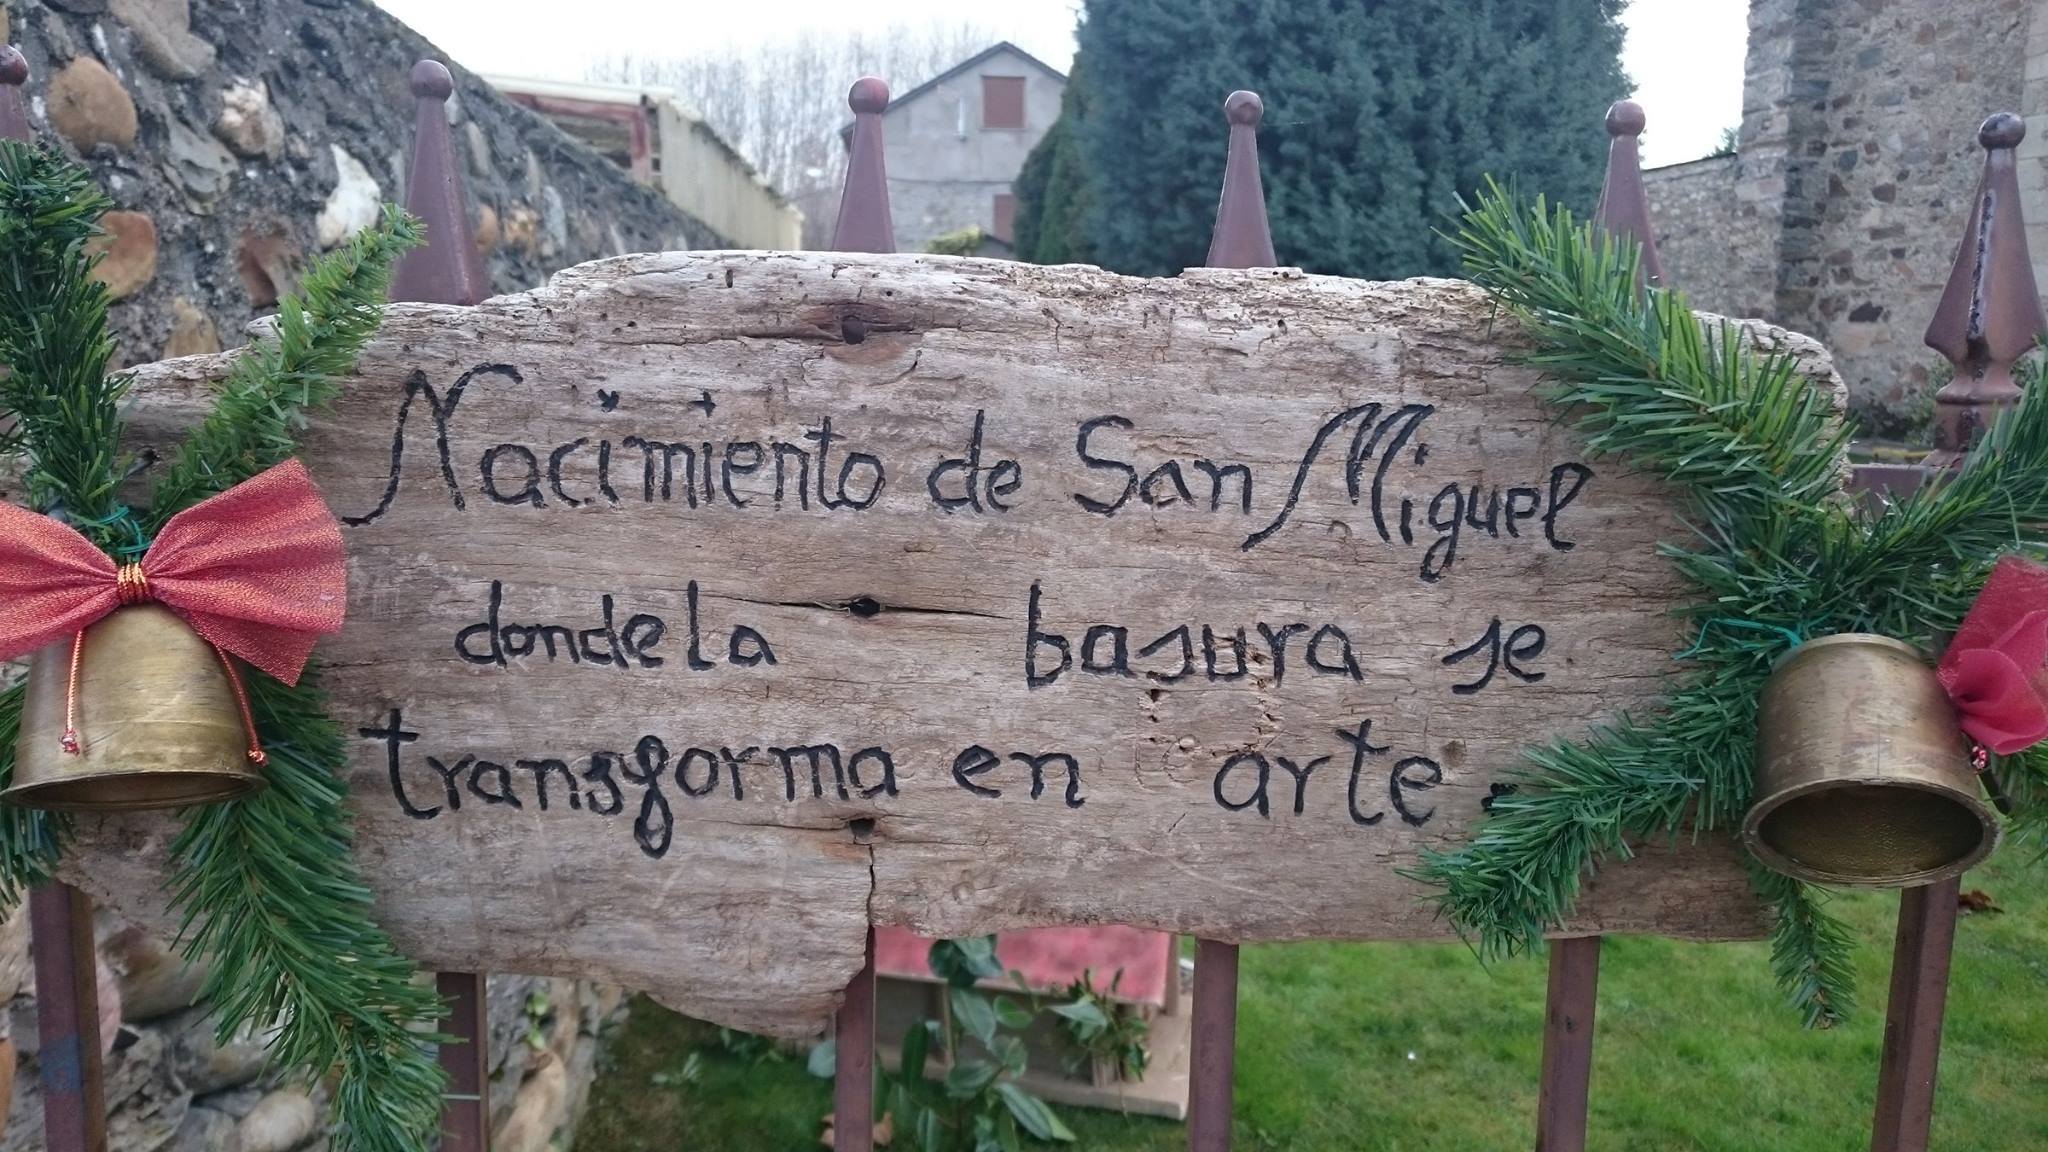 Nacimiento de San Miguel
donde la basura se
transforma en arte.